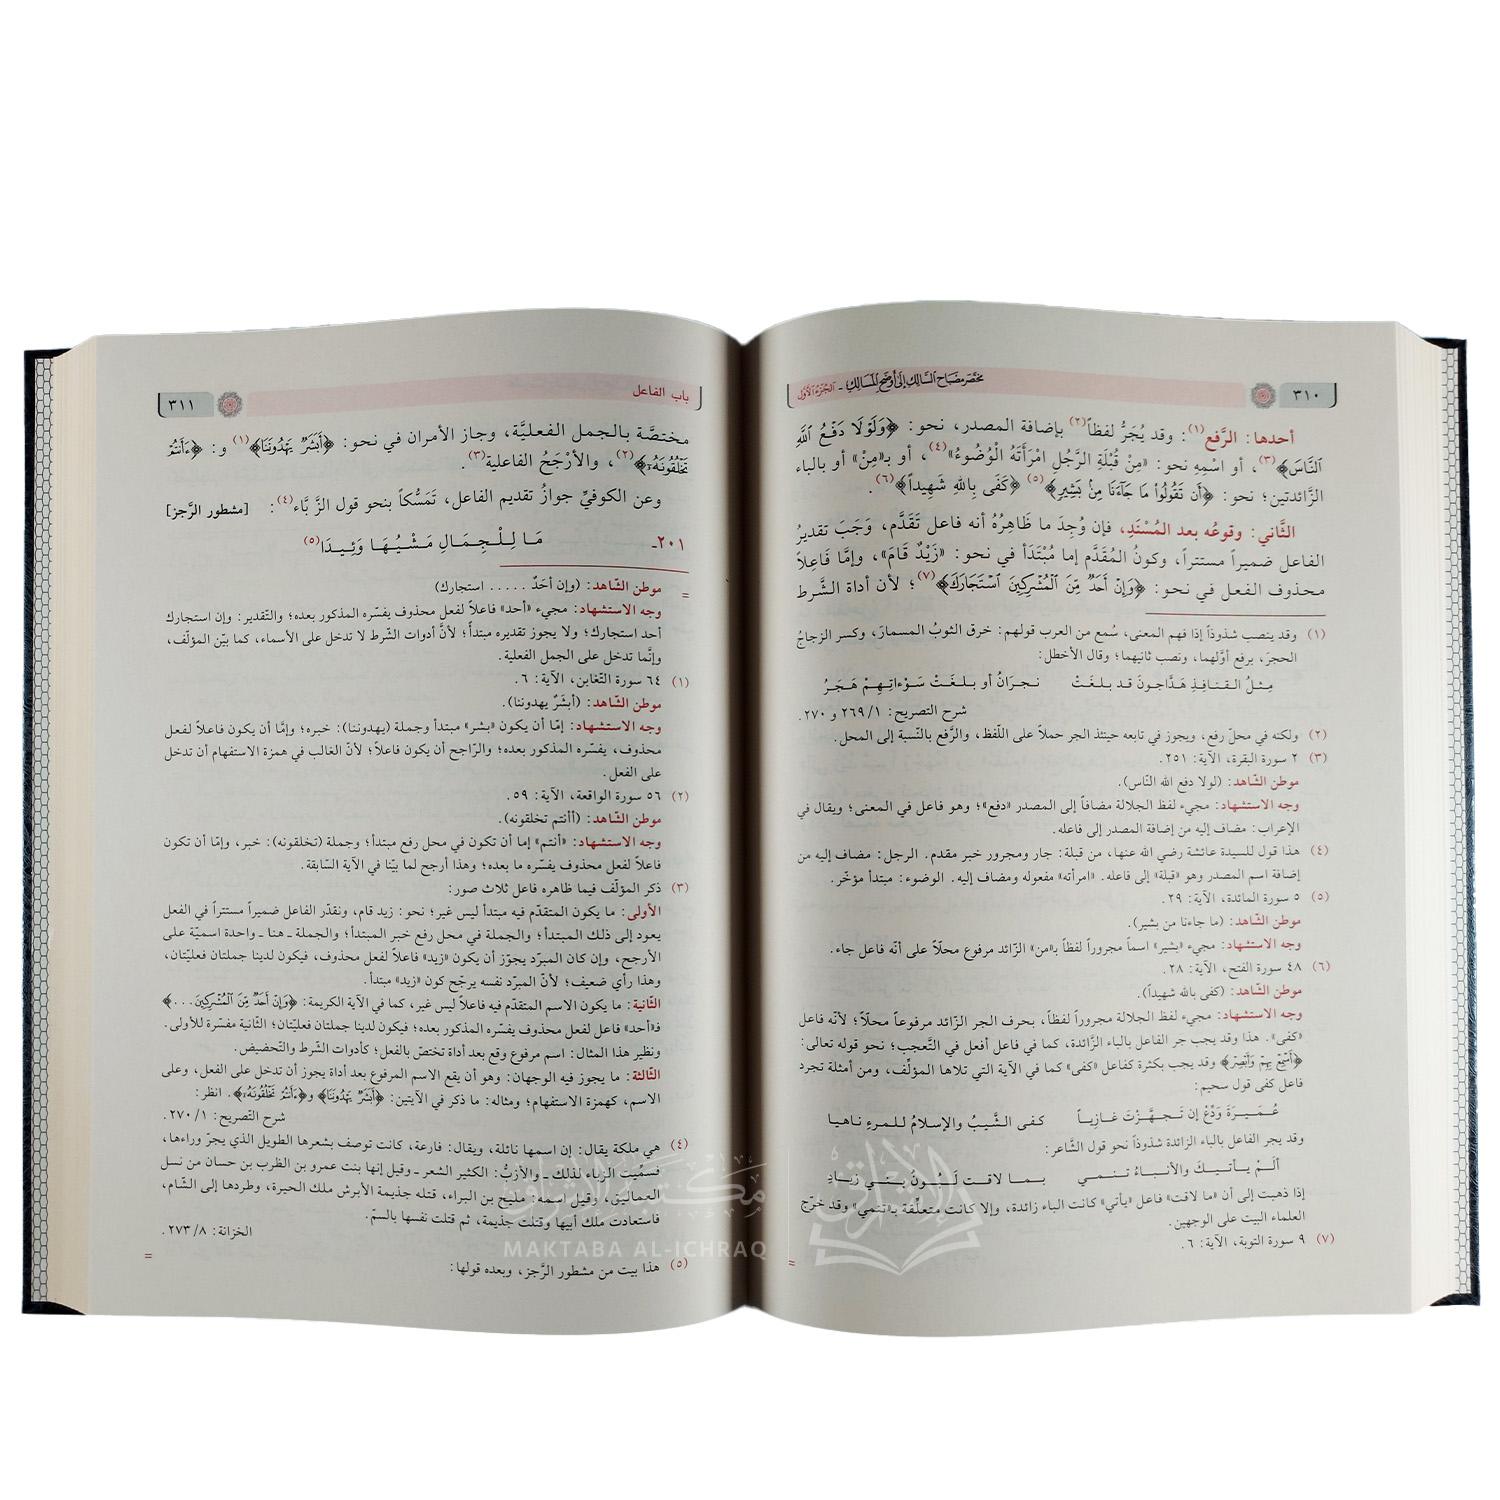 ٣١٠
مختصر مصباح السالك إلى أوضح المسالك - الجزء الأول
أحدها: الرَّفع(١): وقد يُجَرُّ لفظاً(٢) بإضافة المصدر، نحو: ﴿وَلَوْلَا دَفْعُ اللَّهِ
النَّاسَ﴾(٣)، أو اسْمِهِ نحو: «مِنْ قُبْلَةِ الرَّجُلِ امْرَأَتَهُ الْوُضُوءُ»(٤)، أو بـ«مِنْ» أو بالباء
الزَّائدتين؛ نحو: ﴿أَن تَقُولُوا مَا جَاءَنَا مِنْ بَشِيرٍ﴾(٥) ﴿كَفَى بِاللهِ شَهِيداً﴾(٦).
الثَّاني: وقوعُه بعد المُسْنَدِ، فإن وُجِدَ ما ظَاهِرُهُ أنه فاعل تَقَدَّم، وَجَبَ تقديرُ
الفاعل ضميراً مستتراً، وكونُ المُقَدَّم إما مُبْتَدَأ في نحو: «زَيْدٌ قَامَ»، وإمَّا فَاعِلاً
محذوف الفعل في نحو: ﴿وَإِنْ أَحَدٌ مِّنَ الْمُشْرِكِينَ اسْتَجَارَكَ﴾(٧)؛ لأن أداة الشَّرط
(١) وقد ينصب شذوذاً إذا فهم المعنى، سُمع من العرب قولهم: خرق الثوبُ المسمارَ، وكسر الزجاجُ
الحجرَ، برفع أوَّلهما، ونصب ثانيهما؛ وقال الأخطل:
مِثلُ القنافذِ هَدَّاجونَ قد بلغَتْ نجرَانُ أو بلغَتْ سَوْءاتِهِمْ هَجَرُ
شرح التصريح: ٢٦٩/١ و ٢٧٠.
(٢) ولكنه في محلّ رفع، ويجوز في تابعه حينئذ الجر حملاً على اللّفظ، والرَّفع بالنّسبة إلى المحل.
(٣) ٢ سورة البقرة، الآية: ٢٥١.
موطن الشّاهد: (لولا دفع الله النّاس).
وجه الاستشهاد: مجيء لفظ الجلالة مضافاً إلى المصدر «دفع»؛ وهو فاعل في المعنى؛ ويقال في
الإعراب: مضاف إليه من إضافة المصدر إلى فاعله.
(٤) هذا قول للسيدة عائشة رضي الله عنها، من قبلة: جار ومجرور خبر مقدم. الرجل: مضاف إليه من
إضافة اسم المصدر وهو «قبلة» إلى فاعله. «امرأته» مفعوله ومضاف إليه. الوضوء: مبتدأ مؤخّر.
(٥) ٥ سورة المائدة، الآية: ٢٩.
موطن الشّاهد: (ما جاءنا من بشير).
وجه الاستشهاد: مجيء «بشير» اسماً مجروراً لفظاً بـ«من» الزّائد مرفوع محلّاً على أنّه فاعل جاء.
(٦) ٤٨ سورة الفتح، الآية: ٢٨.
موطن الشّاهد: (كفى بالله شهيداً).
وجه الاستشهاد: مجيء لفظ الجلالة مجروراً لفظاً، بحرف الجر الزّائد مرفوعاً محلّاً؛ لأنّه فاعل
«كفى». هذا وقد يجب جر الفاعل بالباء الزّائدة، كما في فاعل أفعل في التّعجب؛ نحو قوله تعالى:
﴿أَسْمِعْ بِهِمْ وَأَبْصِرْ﴾ وقد يجب بكثرة كفاعل «كفى» كما في الآية التي تلاها المؤلّف، ومن أمثلة تجرد
فاعل كفى قول سحيم:
عُمَيرَةَ وَدِّعْ إن تَجهَّزْتَ غازِياً كفى الشَّيبُ والإسلامُ للمرءِ ناهيا
وقد يجر الفاعل بالباء الزائدة شذوذاً نحو قول الشَّاعر:
ألَمْ يأتيكَ والأنباءُ تنمي بما لاقت لَبُونُ بني زيادِ
إذا ذهبت إلى أن «ما لاقت» فاعل «يأتي» كانت الباء زائدة، وإلا كانت متعلّقة بـ«تنمي» وقد خرّج
العلماء البيت على الوجهين.
(٧) ٩ سورة التوبة، الآية: ٦.
=
باب الفاعل
٣١١
مختصَّة بالجمل الفعليَّة، وجاز الأمران في نحو: ﴿أَبَشَرٌ يَهْدُونَنَا﴾(١) و: ﴿ءَأَنتُمْ
تَخْلُقُونَهُ﴾(٢)، والأرْجَحُ الفاعلية(٣).
وعن الكوفيِّ جوازُ تقديم الفاعل، تَمَسُّكاً بنحو قول الزَّبَّاء(٤): [مشطور الرَّجز]
٢٠١ـ مَا لِلْجِمَالِ مَشْيُهَا وَئِيدَا(٥)
= موطن الشّاهد: (وإن أحَدٌ ..... استجارك)
وجه الاستشهاد: مجيء «أحد» فاعلاً لفعل محذوف يفسّره المذكور بعده؛ والتّقدير: وإن استجارك
أحد استجارك؛ ولا يجوز تقديره مبتدأً؛ لأنَّ أدوات الشّرط لا تدخل على الأسماء، كما بيّن المؤلّف،
وإنَّما تدخل على الجمل الفعلية.
(١) ٦٤ سورة التّغابن، الآية: ٦.
موطن الشّاهد: (أبشَرٌ يهدوننا).
وجه الاستشهاد: إمّا أن يكون «بشر» مبتدأ وجملة (يهدوننا): خبره؛ وإمَّا أن يكون فاعلاً لفعل
محذوف، يفسّره المذكور بعده؛ والرّاجح أن يكون فاعلاً؛ لأنّ الغالب في همزة الاستفهام أن تدخل
على الفعل.
(٢) ٥٦ سورة الواقعة، الآية: ٥٩.
موطن الشّاهد: (أأنتم تخلقونه).
وجه الاستشهاد: «أنتم» إما أن تكون في محل رفع مبتدأ؛ وجملة (تخلقونه): خبر، وإمّا أن تكون
فاعلاً لفعل محذوف يفسّره ما بعده؛ وهذا أرجح لما بيّنا في الآية السّابقة.
(٣) ذكر المؤلّف فيما ظاهره فاعل ثلاث صور:
الأولى: ما يكون المتقدّم فيه مبتدأ ليس غير؛ نحو: زيد قام، ونقدّر الفاعل ضميراً مستتراً في الفعل
يعود إلى ذلك المبتدأ؛ والجملة في محل رفع خبر المبتدأ؛ والجملة ـ هنا ـ واحدة اسميّة على
الأرجح، وإن كان المبرّد يجوّز أن يكون «زيد» فاعلاً لفعل محذوف، فيكون لدينا جملتان فعليّتان،
وهذا رأي ضعيف؛ لأنّ المبرّد نفسه يرجّح كون «زيد» مبتدأ.
الثّانية: ما يكون الاسم المتقدّم فيه فاعلاً ليس غير، كما في الآية الكريمة: ﴿وَإِنْ أَحَدٌ مِّنَ الْمُشْرِكِينَ...﴾
فـ«أحد» فاعل لفعل محذوف يفسّره المذكور بعده؛ فيكون لدينا جملتان فعليّتان؛ الثّانية مفسّرة للأولى.
ونظير هذا المثال: اسم مرفوع وقع بعد أداة تختصّ بالفعل؛ كأدوات الشّرط والتّحضيض.
الثّالثة: ما يجوز فيه الوجهان: وهو أن يقع الاسم المرفوع بعد أداة يجوز أن تدخل على الفعل، وعلى
الاسم، كهمزة الاستفهام؛ ومثاله: ما ذكر في الآيتين: ﴿أَبَشَرٌ يَهْدُونَنَا﴾ و﴿ءَأَنتُمْ تَخْلُقُونَهُ﴾. انظر:
شرح التّصريح: ٢٧٠/١.
(٤) هي ملكة يقال: إن اسمها نائلة، ويقال: فارعة، كانت توصف بشعرها الطويل الذي يجرّ وراءها،
فسمّيت الزباء لذلك ـ والأزبّ: الكثير الشعر ـ وقيل إنها بنت عمرو بن الظرب بن حسان من نسل
العماليق، وقيل اسمه: مليح بن البراء، قتله جذيمة الأبرش ملك الحيرة، وطردها إلى الشّام،
فاستعادت ملك أبيها وقتلت جذيمة، ثم قتلت نفسها بالسمّ.
الخزانة: ٢٧٣/٨.
(٥) هذا بيت من مشطور الرَّجز، وبعده قولها:
=
مكتبة الإشراق
MAKTABA AL-ICHRAQ
الإشراق